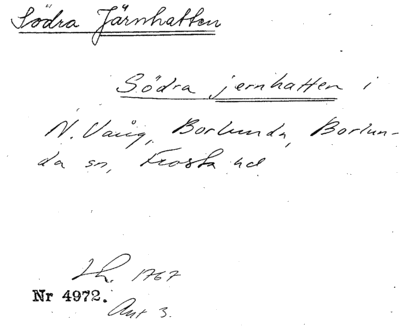 Södra Järnhatten
Södra jernhatten i
N. Vång, Borlunda, Borlun-
da sn, Frosta hd
Lh. 1767
Nr 4972.
Akt 3.